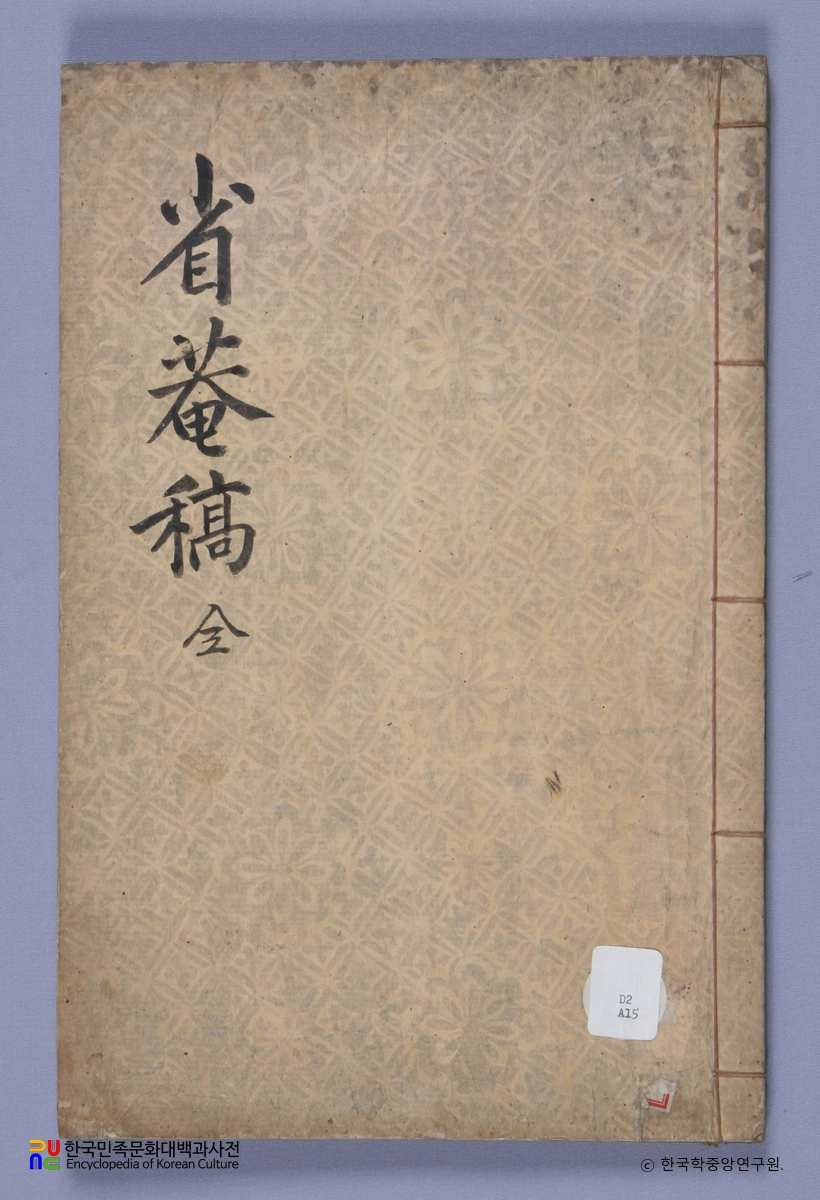 省菴稿 全
D2
A15
한국민족문화대백과사전
Encyclopedia of Korean Culture
© 한국학중앙연구원.